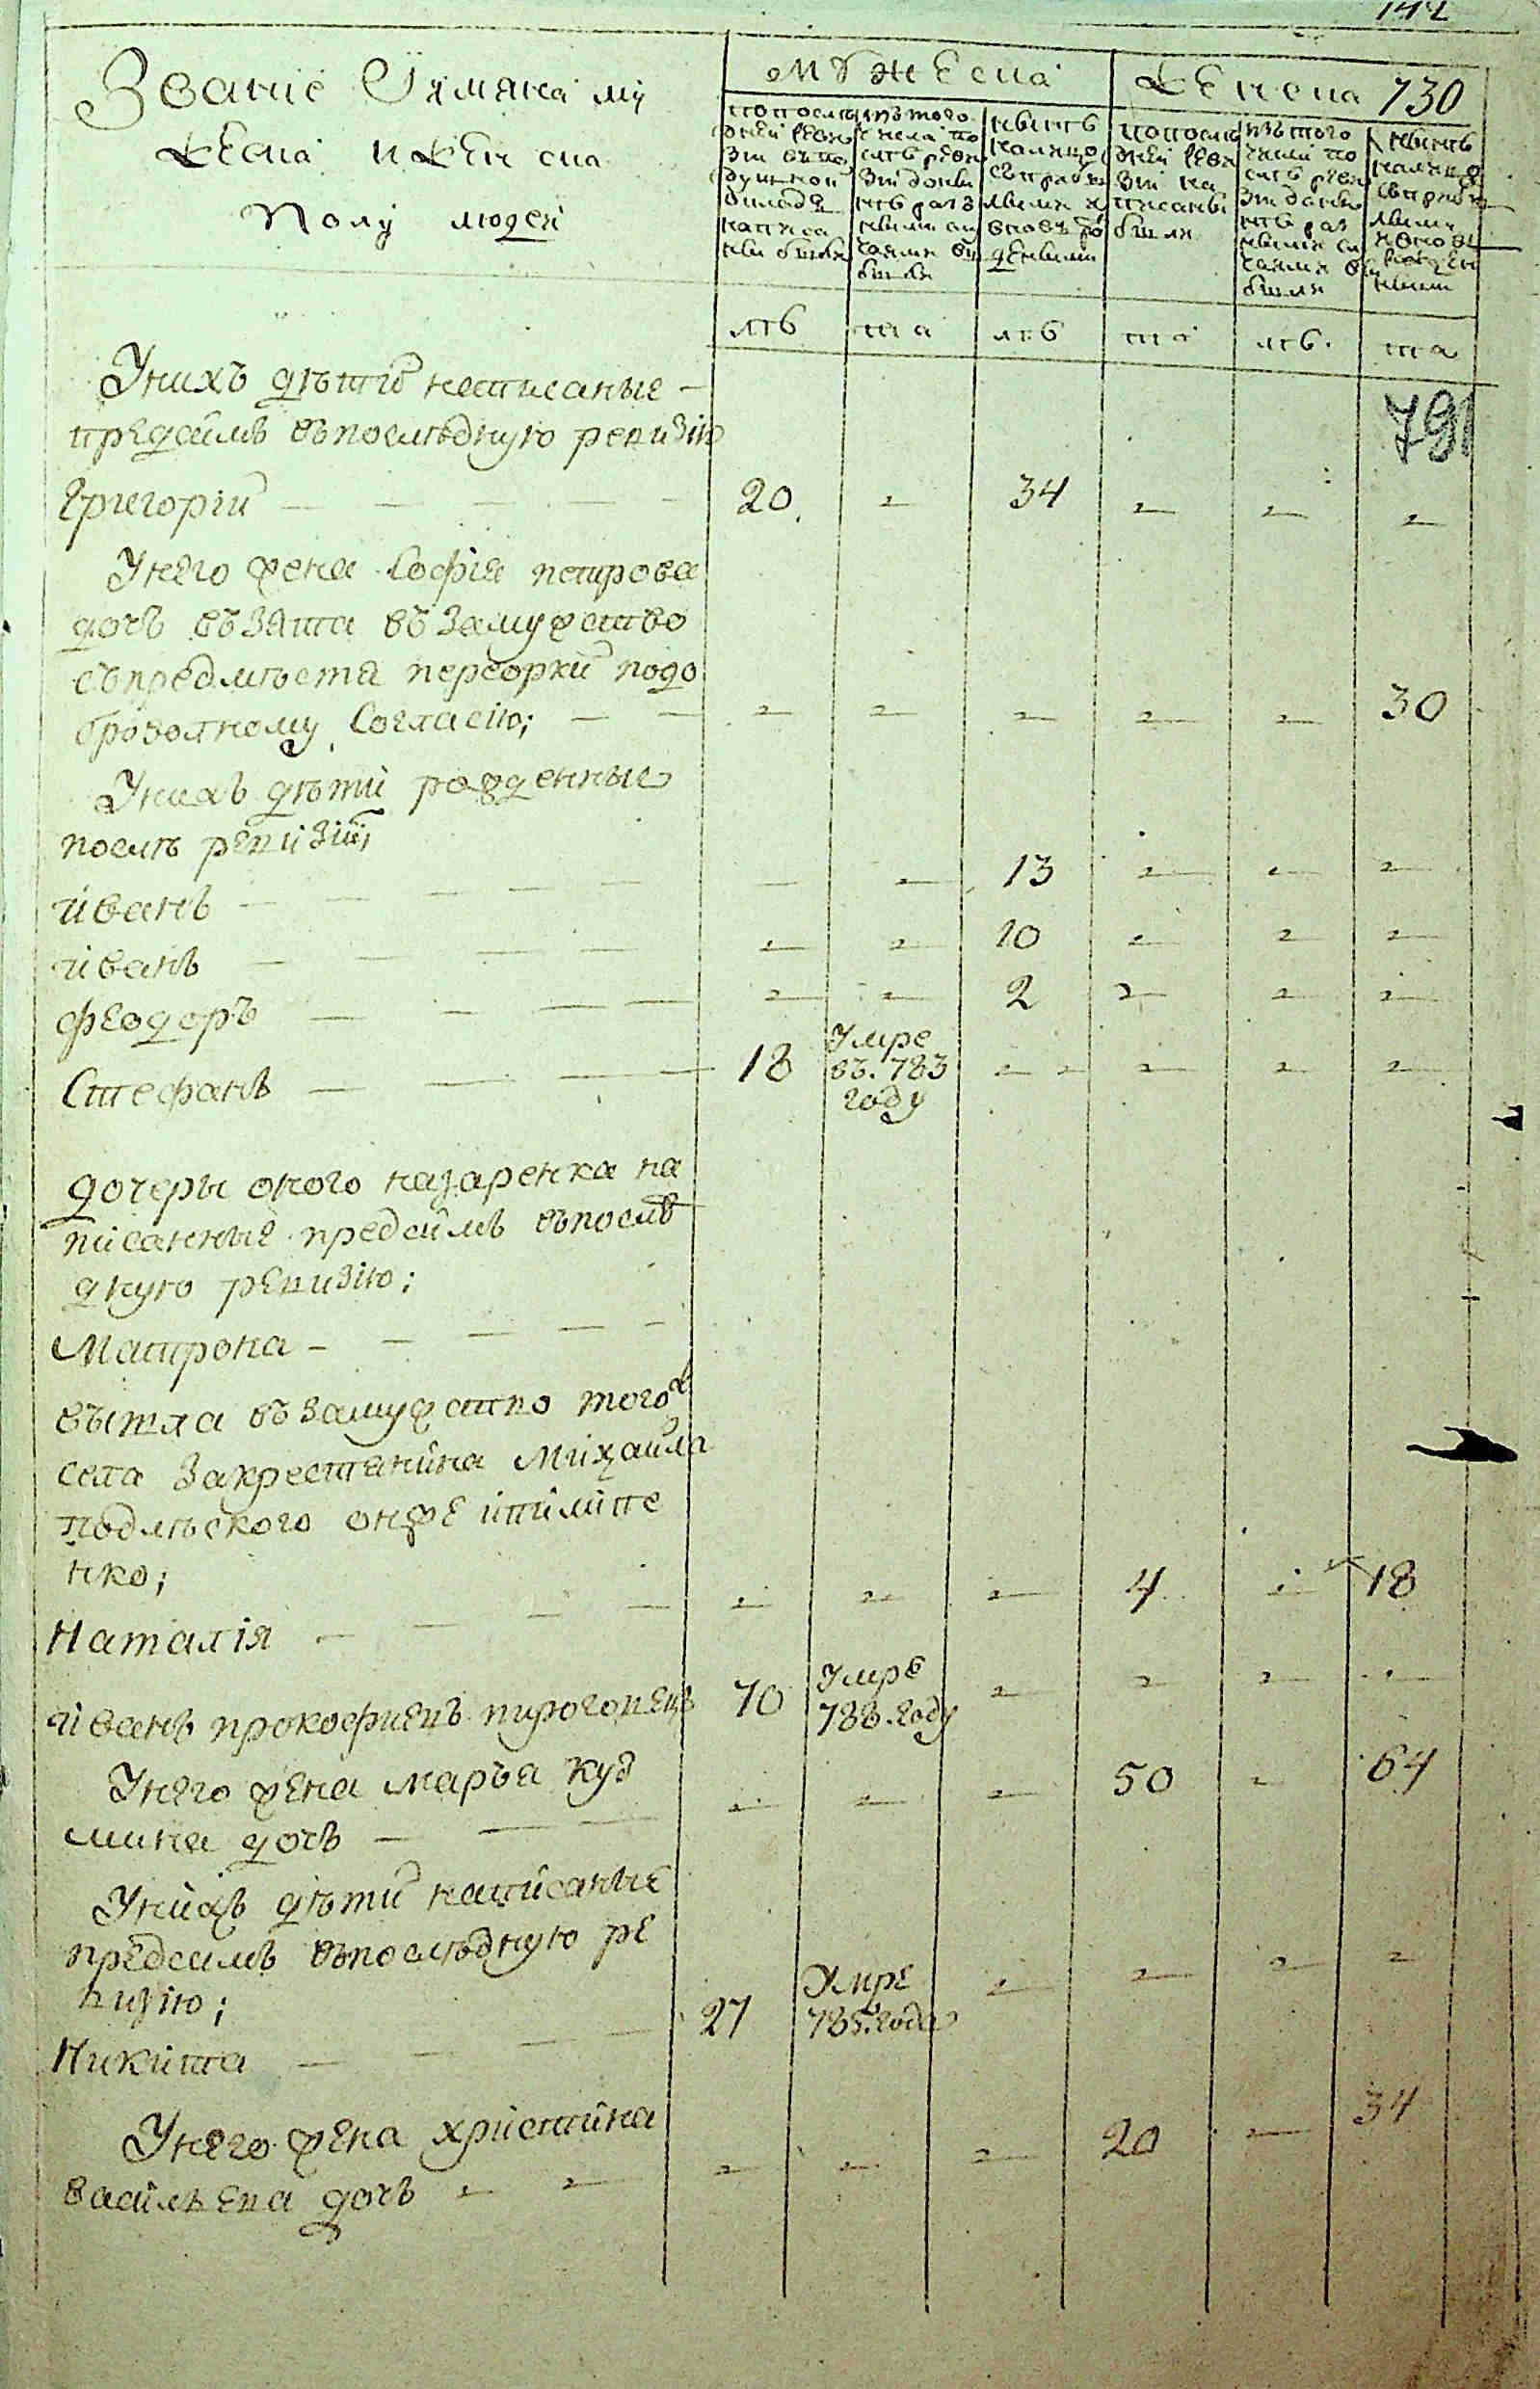 142
Званіе Iимяна му
жеска иженска
полу людей
мужеска
женска
730
попослѣ
дней реви
зіи въпо
душной
окладъ
написа
ны были
изтого
числа по
слѣ реви
зіи
разными случаями вы
были
нынѣ
налицо
съприбы
лыми и
вновь ро
жденными
попослѣ
дней реви
зіи на
писаны
были
изтого
числа по
слѣ реви
зіи
разными случаями вы
были
нынѣ
налицо
съприбы
лыми
ивновь
рожден
ными
лѣ
та
лѣ
та
лѣ
та
791
Унихъ дѣти написаные
предсимъ въпослѣдную ревизію
Григорій 20 34
Унего жена Софія петрова
дочь въ зята въ замужство
съпредмѣстя переорки подо
бровольному Согласію; 30
Унихъ дѣти рожденные
послѣ ревизіи,
иванъ 13
иванъ 10
феодоръ 2
Стефанъ 18 Умре въ. 783 году
дочеры оного назаренка на
писанные предсимъ въпослѣ
дную ревизію:
Матрона
вышла въ замужство того ж
села Закрестянина Михаила
подлѣского онже ипилипе
нко;
Наталія 4 18
иванъ прокофиевъ пироговецъ 70 Умре 788. году
Унего жена марья куз
мина дочь 50 64
Унихъ дѣти написаные
предсимъ въпослѣдную ре
визію;
Никита 27 Умре 785. года
Унего жена христина
василѣева дочь 20 34